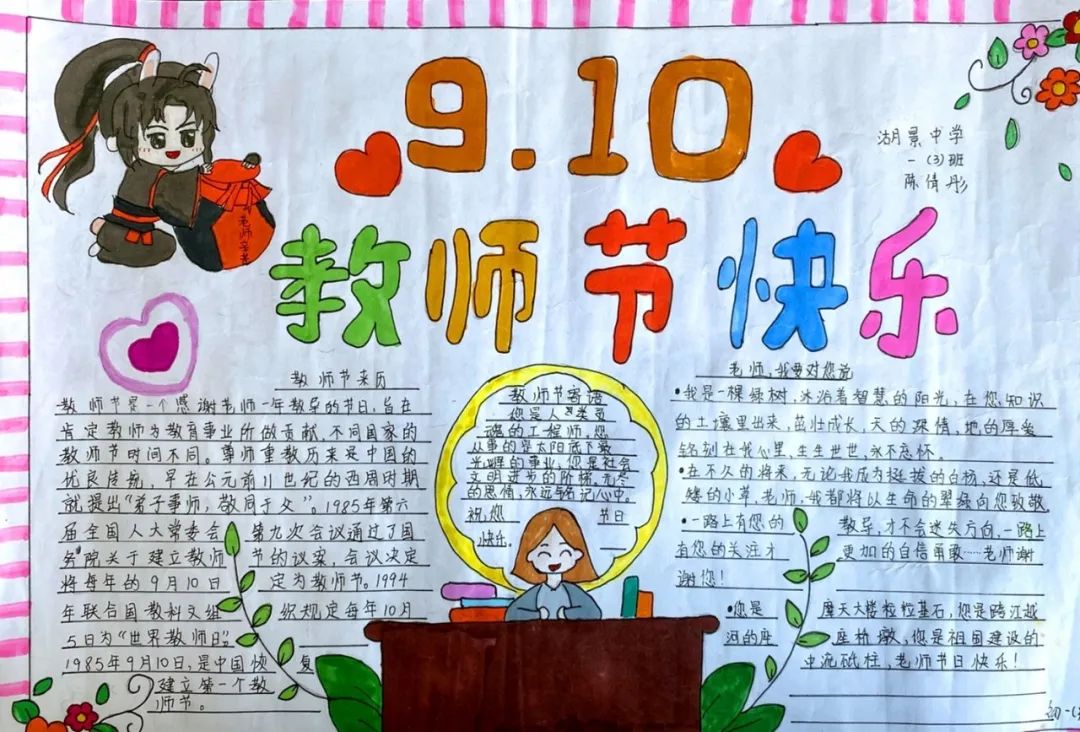 9.10
湖景中学
一(3)班
陈倩彤
老师辛苦
教师节快乐
教师节来历
教师节是一个感谢老师一年教导的节日,旨在
肯定教师为教育事业所做贡献,不同国家的
教师节时间不同。尊师重教历来是中国的
优良传统,早在公元前11世纪的西周时期
就提出“弟子事师,敬同于父”。1985年第六
届全国人大常委会 第九次会议通过了国
务院关于建立教师 节的议案,会议决定
将每年的9月10日 定为教师节。1994
年联合国教科文组 织规定每年10月
5日为“世界教师日”
1985年9月10日,是中国恢 复
建立第一个教
师节。
教师节寄语
您是人类灵
魂的工程师,您
从事的是太阳底下最
光辉的事业,您是社会
文明进步的阶梯,无尽
的恩情,永远铭记心中。
祝您 节日
快乐。
老师,我要对您说
•我是一棵绿树,沐浴着智慧的阳光,在您知识
的土壤里出来,茁壮成长,天的深情,地的厚爱
铭刻在我心里,生生世世,永不忘怀。
•在不久的将来,无论我成为挺拔的白杨,还是低
矮的小草,老师,我都将以生命的翠绿向您致敬
•一路上有您的 教导,才不会迷失方向,一路上
有您的关注才 更加的自信勇敢……老师谢
谢您!
•您是 摩天大楼粒粒基石,您是跨江越
河的座 座桥墩,您是祖国建设的
中流砥柱,老师节日快乐!